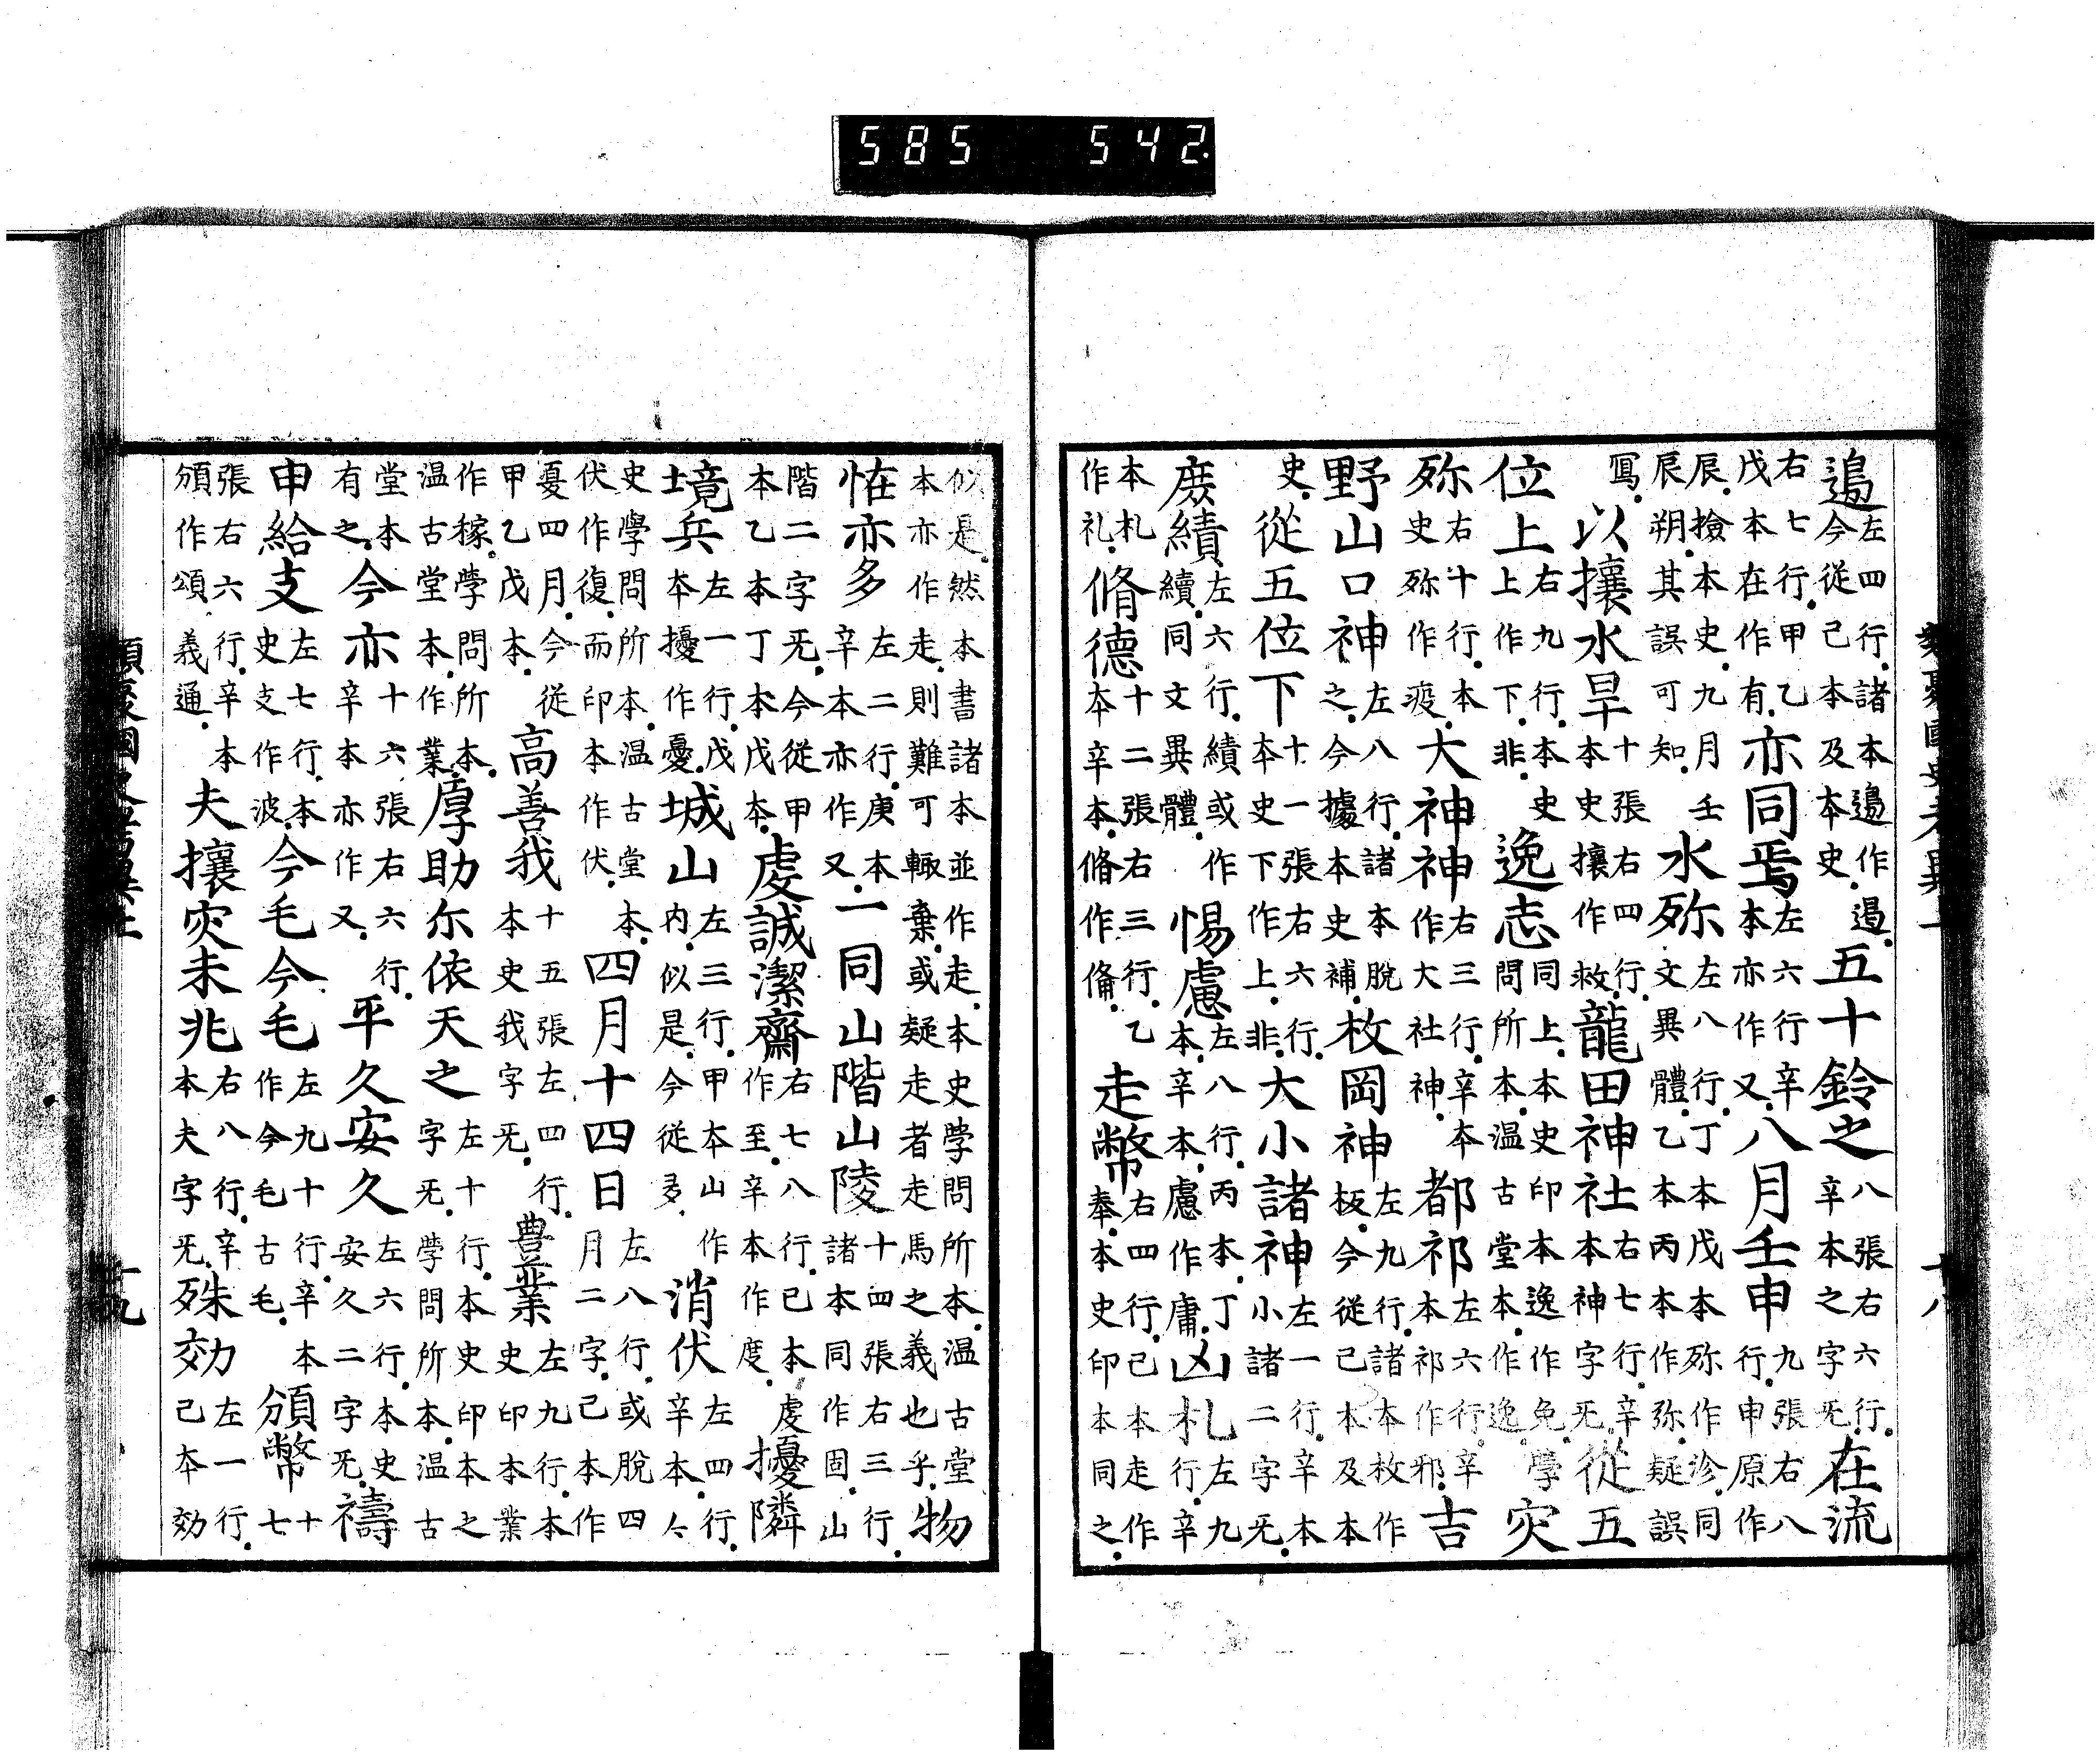 邉左四行諸本邉作邊今從己本及本史五十鈴之八張右六行辛本之字旡在流
右七行甲乙戊本在作有亦同焉左六行辛本亦作又八月壬申九張右八行申原作
辰撿本史九月壬辰朔其誤可知水殄左八行丁本戊本殄作沴同文異體乙本丙本作弥疑誤
寫以攘水旱十張右四行本史攘作救龍田神社右七行辛本神字旡從五
位上右九行本史上作下非逸志同上本史印本逸作免學問所本温古堂本作逸灾
殄右十行本史殄作疫大神神右三行辛本作大社神都祁左六行辛本祁作邪吉
野山口神左八行諸本脫之今據本史補枚岡神左九行諸本枚作板今從己本及本
史從五位下十一張右六行本史下作上非大小諸神左一行辛本小諸二字旡
庶績左六行績或作續同文異體惕慮左八行丙本丁本辛本慮作庸凶札左九行辛
本札作礼脩德十二張右三行乙本辛本脩作備走幣右四行己本走作奉本史印本同之
十八
似是然本書諸本並作走本史學問所本温古堂本亦作走則難可輙棄或疑走者走馬之義也乎物
恠亦多左二行庚本辛本亦作又一同山階山陵十四張右三行諸本同作固山
階二字旡今從甲本乙本丁本戊本虔誠潔齋右七八行己本虔作至辛本作度擾隣
境兵左一行戊本擾作憂城山左三行甲本山作内似是今從多消伏左四行辛本亼
史學問所本温古堂本伏作復而印本作伏四月十四日左八行或脫四月二字己本作
憂四月今從甲乙戊本高善我十五張左四行本史我字旡豊業左九行本史印本業
作稼學問所本温古堂本作業厚助尓依天之左十行本史印本之字旡學問所本温古
堂本有之今亦十六張右六行辛本亦作又平久安久左六行本史安久二字旡禱
申給支左七行本史支作波今毛今毛左九十行辛本作今毛古毛頒幣十七
張右六行辛本頒作頌義通夫攘灾未兆右八行辛本夫字旡殊効左一行己本効